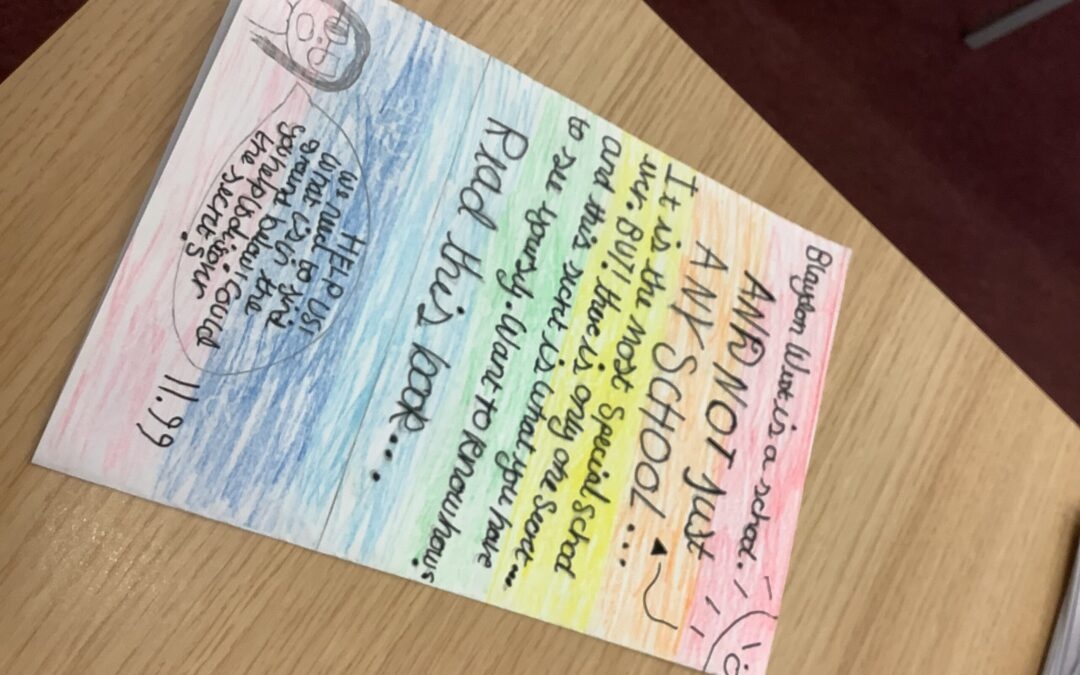 Blaydon West is a school.
AND NOT just
ANY SCHOOL...
It is the most special school
ever. BUT! there is only one secret...
and this secret is what you have
to see yourself. Want to know how?
Read this book....
HELP US!
We need to find
what is in the
ground below! Could
you help us discover
the secret?
11.99